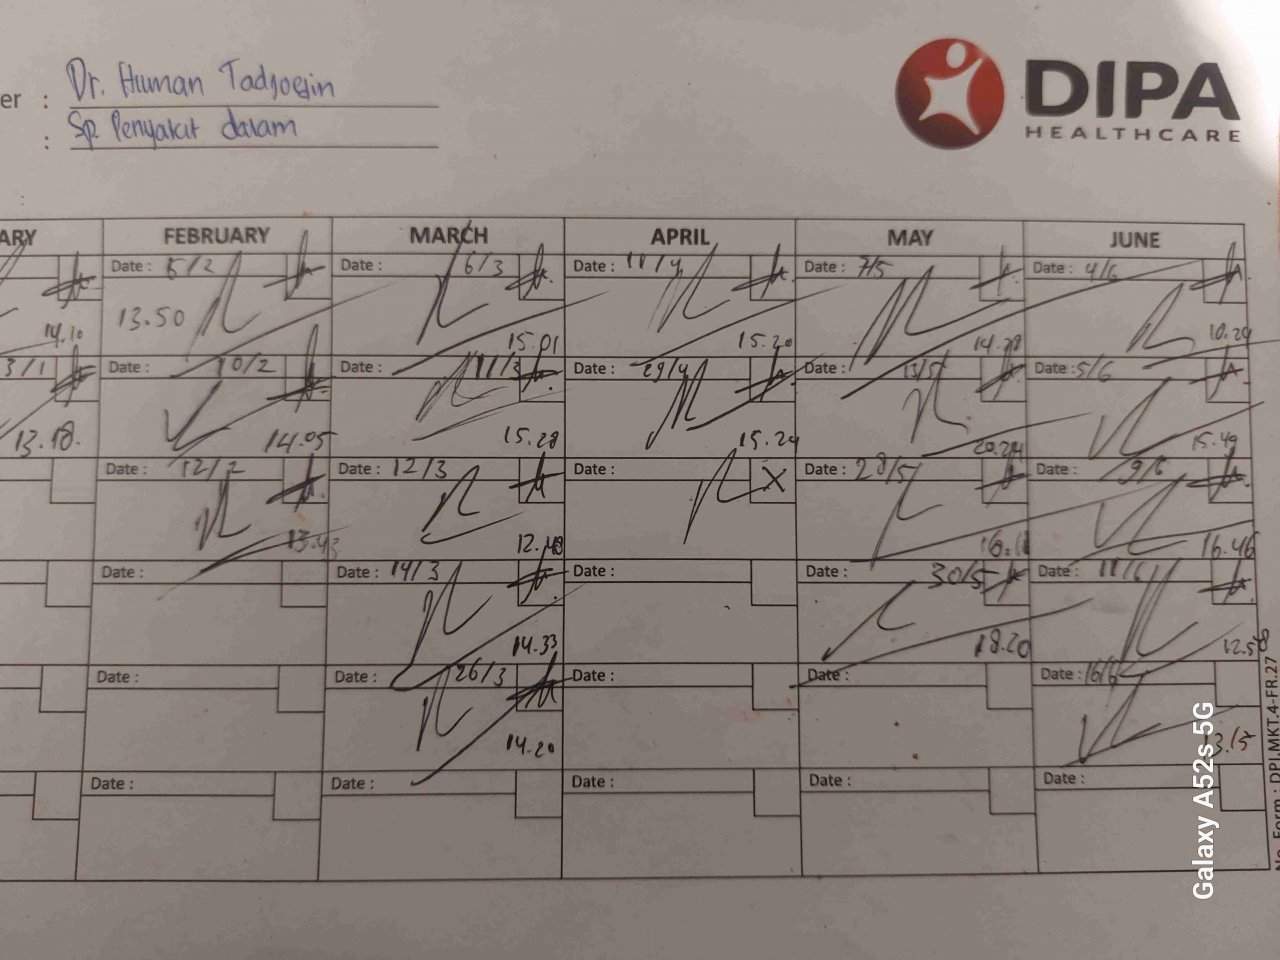 er : Dr. Human Tadjoedin
: Sp. Penyakit dalam
DIPA
HEALTHCARE
ARY FEBRUARY MARCH APRIL MAY JUNE
Date : 5/2 Date : 6/3 Date : 11/4 Date : 7/5 Date : 4/6
14.10 13.50 15.01 15.20 14.28 10.29
3/1 Date : 10/2 Date : 11/3 Date : 29/4 Date : 13/5 Date : 5/6
13.18. 14.05 15.28 15.24 15.49
Date : 12/2 Date : 12/3 Date : X Date : 28/5 Date : 9/6
13.43 12.48 16.46
Date : Date : 14/3 Date : Date : 30/5 Date : 11/6
14.33 18.20 12.58
Date : Date : 26/3 Date : Date : Date : 16/6
14.20 13.15
Date : Date : Date : Date : Date :
No. Form : DPI.MKT.4-FR.27
Galaxy A52s 5G